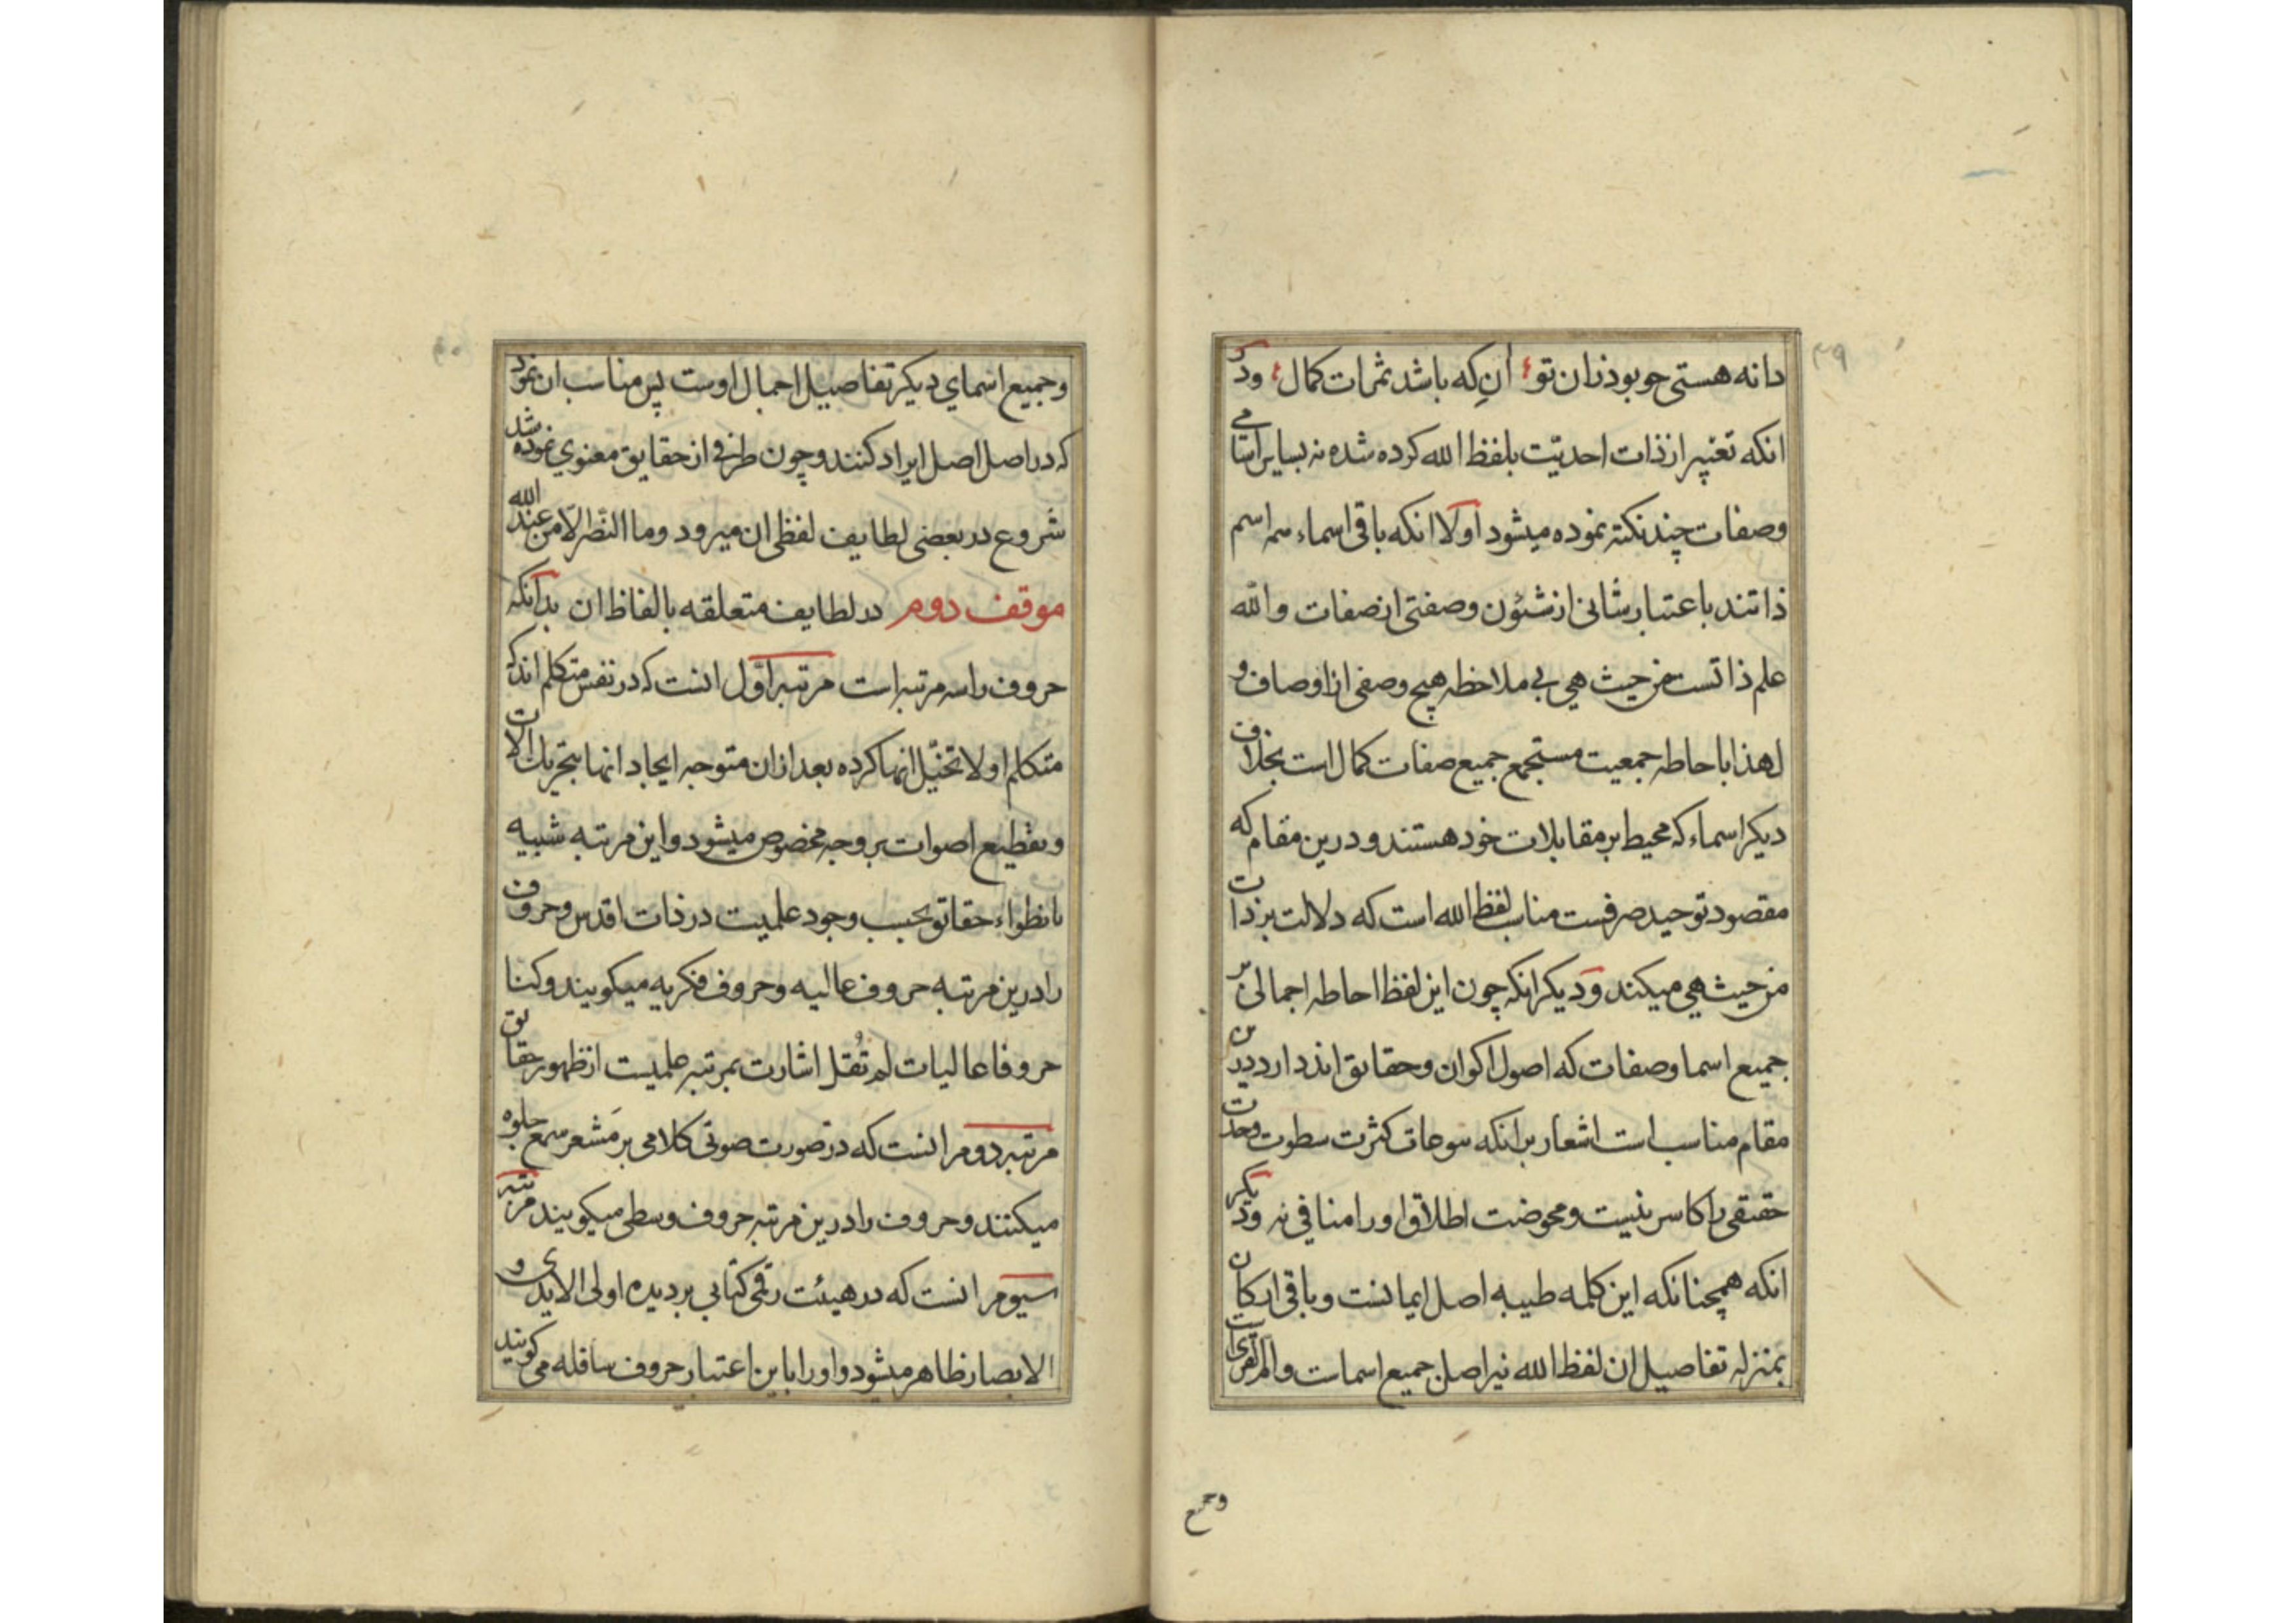 ۳۹
دانه هستی چو بود زان تو آن که باشد ثمرات کمال ودیکر
انکه تعبیر از ذات احدیّت بلفظ الله کرده شده نه بسایر اسامی
وصفات چند نکته نموده میشود اولا انکه باقی اسماء سه اسم
ذاتند باعتبار شانی از شئون وصفتی از صفات والله
علم ذاتست من حیث هی بی ملاحظه هیچ وصفی از اوصاف و
لهذا باحاطه جمعیت مستجمع جمیع صفات کمال است بخلاف
دیکر اسماء که محیط بر مقابلات خود هستند و درین مقام که
مقصود توحید صرفست مناسب لفظ الله است که دلالت بر ذات
من حیث هی میکند ودیکر انکه چون این لفظ احاطه اجمالی بر
جمیع اسما وصفات که اصول اکوان وحقایق اند دارد درین
مقام مناسب است اشعار برانکه کثرت سطوت وحدت
حقیقی را کاسر نیست ومحوضت اطلاق اورا منافی نه ودیکر
انکه همچنانکه این کلمه طیبه اصل ایمانست وباقی ارکان
بمنزله تفاصیل ان لفظ الله نیز اصل جمیع اسماست
وجمیع
وجمیع اسمای دیکر تفاصیل اجمال اوست پس مناسب ان نمود
که در اصل اصل ایراد کنند وچون طرفی از حقایق معنوی نموده شد
شروع در بعضی لطایف لفظی ان میرود وما النّصر الّا من عند الله
موقف دوم در لطایف متعلقه بالفاظ ان بدانکه
حروف را سه مرتبه است مرتبه اوّل انست که در نفس متکلم اند که
متکلم اولا تخیّل انها کرده بعد ازان متوجه ایجاد انها بتحریك الات
وتقطیع اصوات بر وجه مخصوص میشود واین مرتبه شبیه
بانطواء حقایق بحسب وجود علمیت در ذات اقدس وحروف
را درین مرتبه حروف عالیه وحروف فکریه میکویند وکنا
حروفا عالیات لم نُقل اشارت بمرتبه علمیست از ظهور حقایق
مرتبه دوم انست که در صورت صوتی کلامی بر مَشعر سمع جلوه
میکنند وحروف را درین مرتبه حروف وسطی میکویند مرتبه
سیوم انست که در هیئت رقمی کتابی بر دیده اولی الایدی و
الابصار ظاهر میشود واورا باین اعتبار حروف سافله می کویند